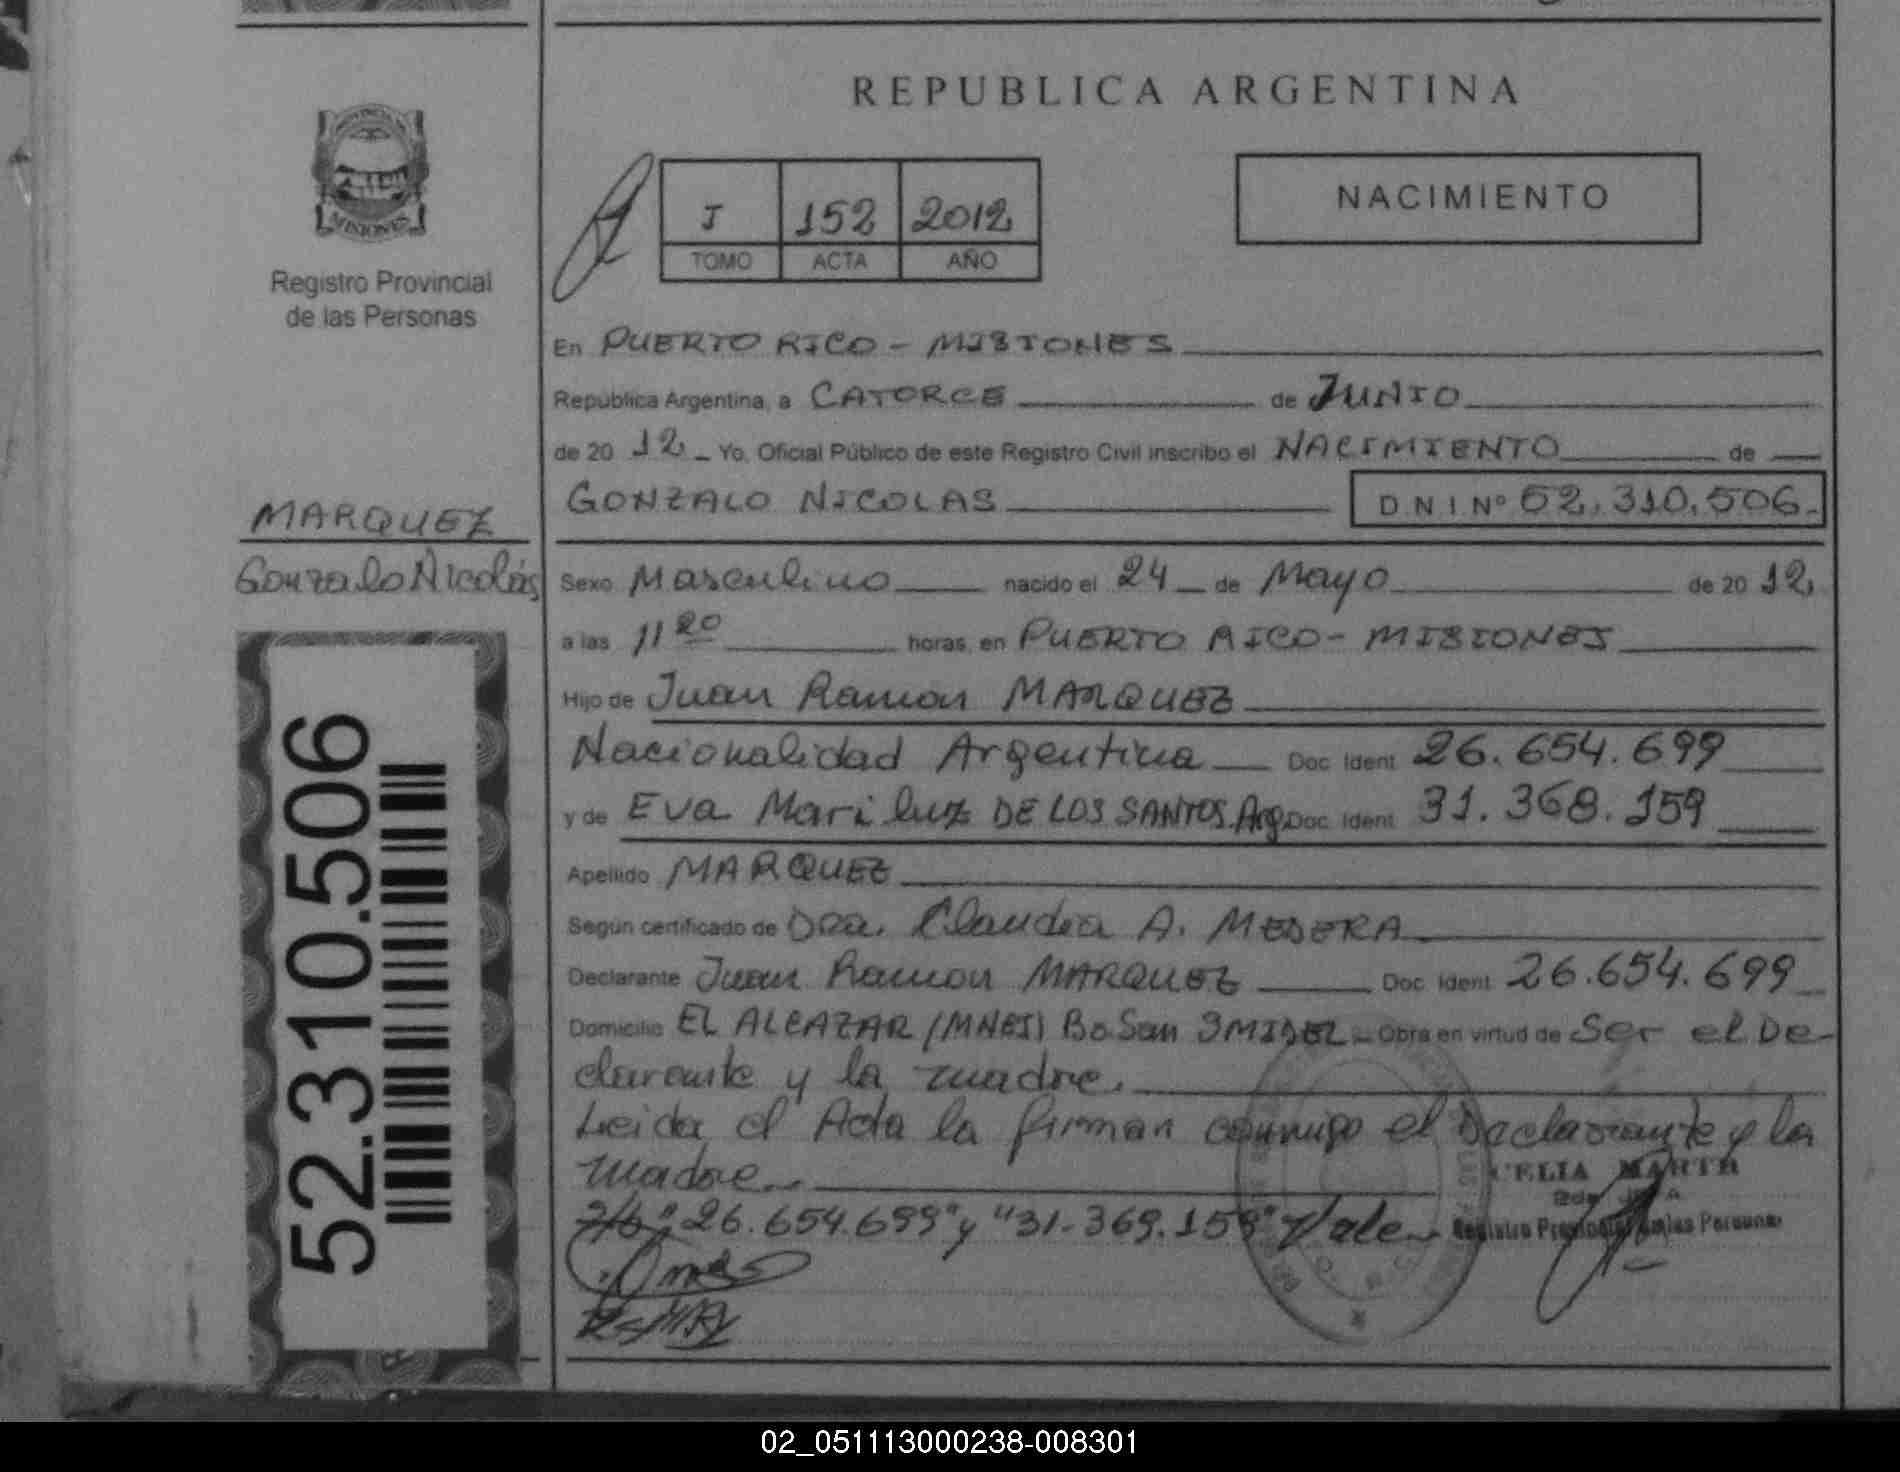 REPUBLICA ARGENTINA
MISIONES
Registro Provincial
de las Personas
J 152 2012
TOMO ACTA AÑO
NACIMIENTO
En PUERTO RICO - MISIONES
República Argentina, a CATORCE de JUNIO
de 20 12 Yo, Oficial Público de este Registro Civil inscribo el NACIMIENTO de
GONZALO NICOLAS D.N.I Nº 52.310.506.
MARQUEZ
Gonzalo Nicolás
52.310.506
Sexo Masculino nacido el 24 de Mayo de 20 12
a las 11 20 horas, en PUERTO RICO - MISIONES
Hijo de Juan Ramon MARQUEZ
Nacionalidad Argentina Doc. Ident. 26.654.699
y de Eva Mari luz DE LOS SANTOS. Arg. Doc. Ident. 31.368.159
Apellido MARQUEZ
Según certificado de Dra. Claudia A. MEDERA
Declarante Juan Ramon MARQUEZ Doc. Ident. 26.654.699
Domicilio EL ALCAZAR (MNES) Bo San Obra en virtud de Ser el De-
clarante y la madre.
Leida el Acta la firman conmigo el Declarante y la
madre.
"26.654.699" y "31.369.159" Vale
CELIA
Registro Provincial de las Personas
02_051113000238-008301